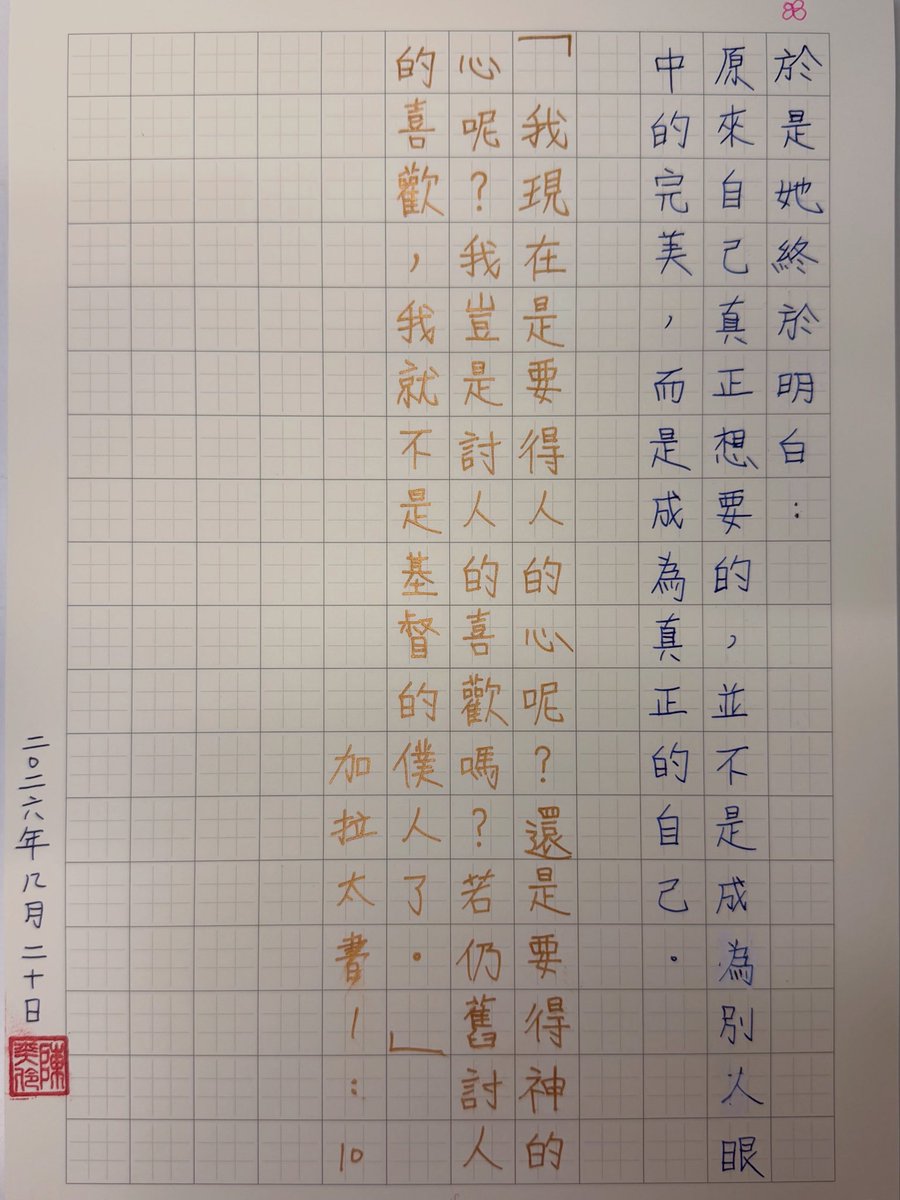 88
於是她終於明白：
原來自己真正想要的，並不是成為別人眼
中的完美，而是成為真正的自己。
「我現在是要得人的心呢？還是要得神的
心呢？我豈是討人的喜歡嗎？若仍舊討人
的喜歡，我就不是基督的僕人了。」
加拉太書1：10
二〇二六年八月二十日